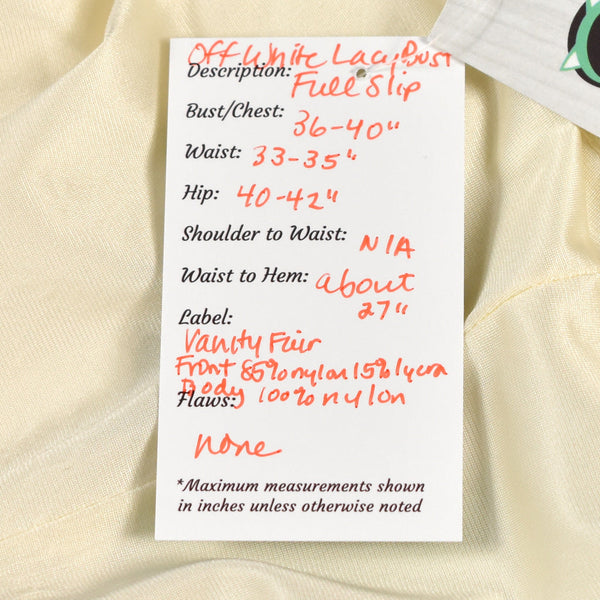 Off White Lacy Bust
Description: Full Slip
Bust/Chest: 36-40"
Waist: 33-35"
Hip: 40-42"
Shoulder to Waist: N/A
Waist to Hem: about
27"
Label:
Vanity Fair
Front 85% nylon 15% lycra
Body 100% nylon
Flaws:
none
*Maximum measurements shown
in inches unless otherwise noted